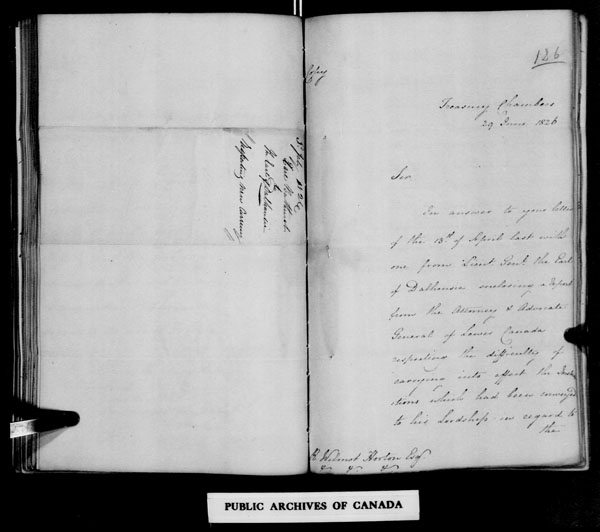 3d July 1826
Earl Bathurst
to
The Earl of Dalhousie
Respecting New Currency
126
Copy
Treasury Chambers
29 June 1826
Sir
In answer to your letter
of the 13th of April last with
one from Lieut Genl. the Earl
of Dalhousie enclosing a Report
from the Attorney & Advocate
General of Lower Canada
respecting the difficulty of
carrying into effect the Instruc
tions which had been conveyed
to his Lordship in regard to
the
R. Wilmot Horton Esq.
&. &. &.
PUBLIC ARCHIVES OF CANADA